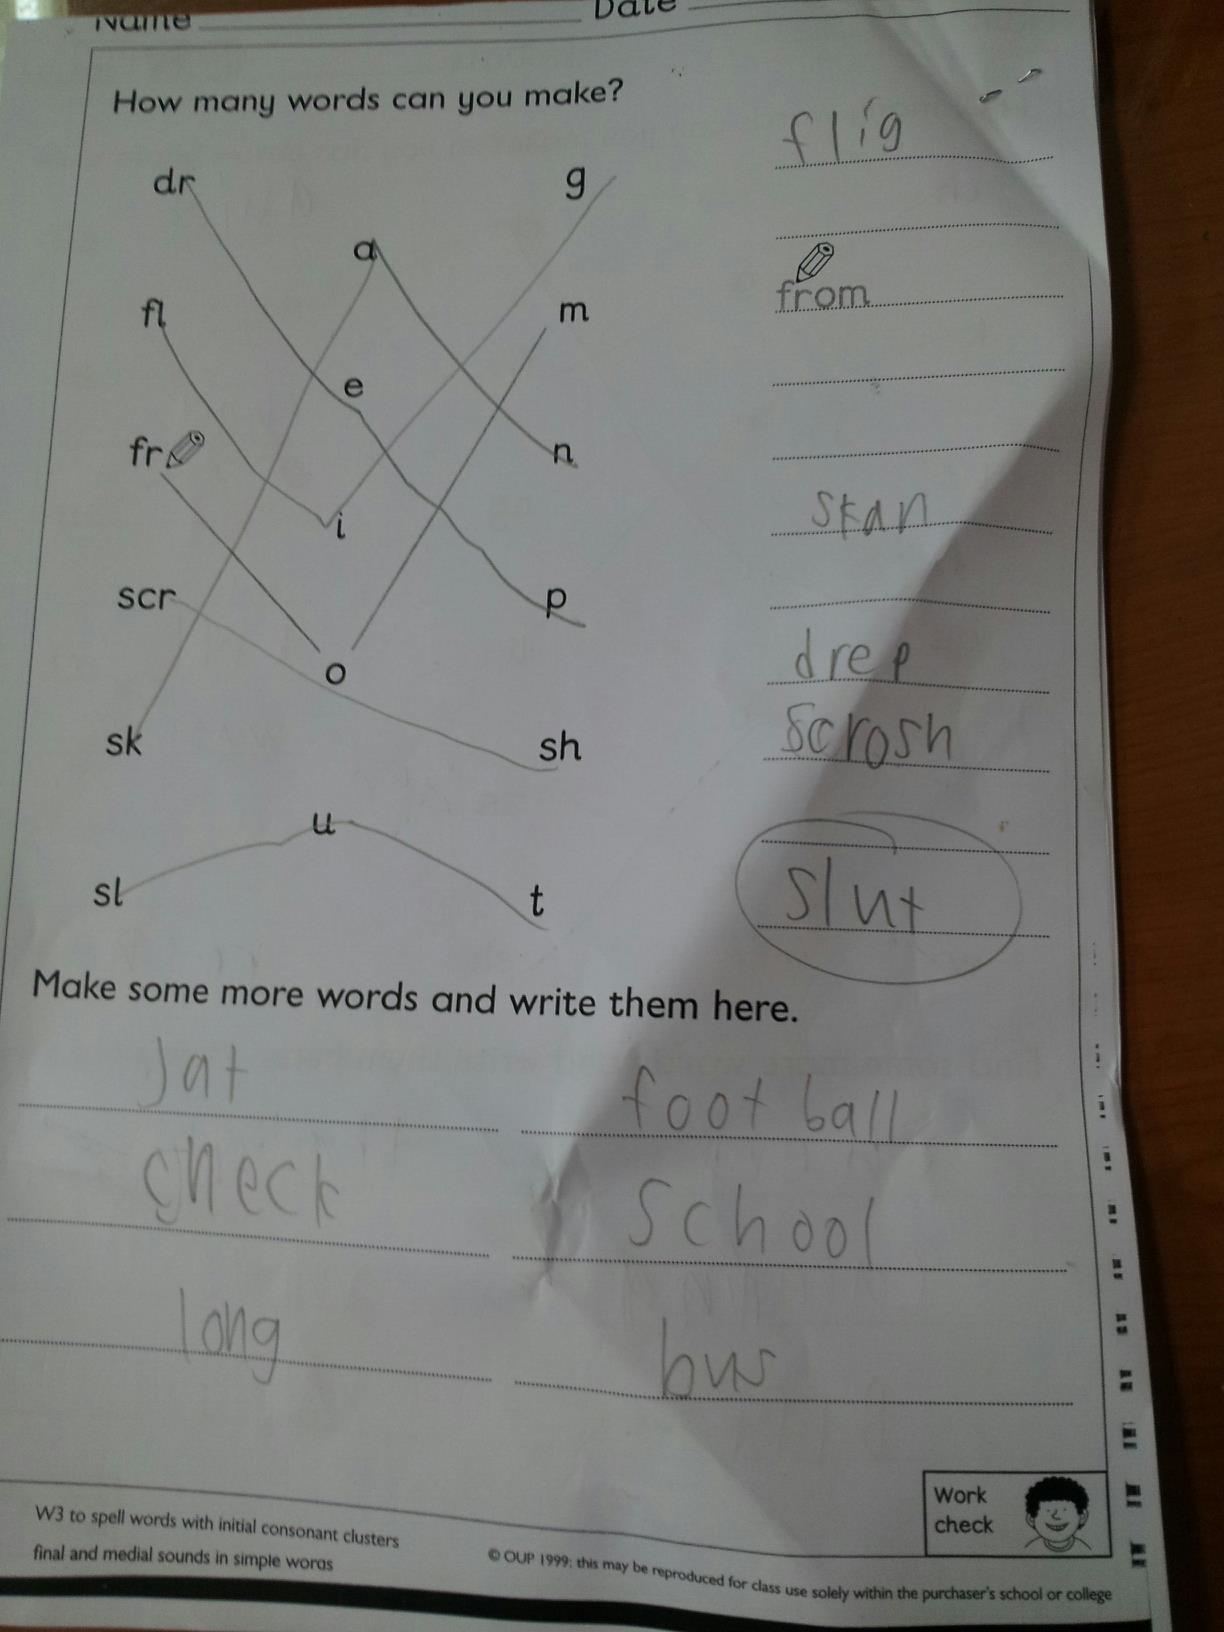 Name Date
How many words can you make?
dr g flig
a
fl m from
e
fr n
i skan
scr p
o drep
sk sh scrosh
u
sl t slut
Make some more words and write them here.
jat football
check school
long bus
Work
check
W3 to spell words with initial consonant clusters
final and medial sounds in simple words
© OUP 1999: this may be reproduced for class use solely within the purchaser's school or college